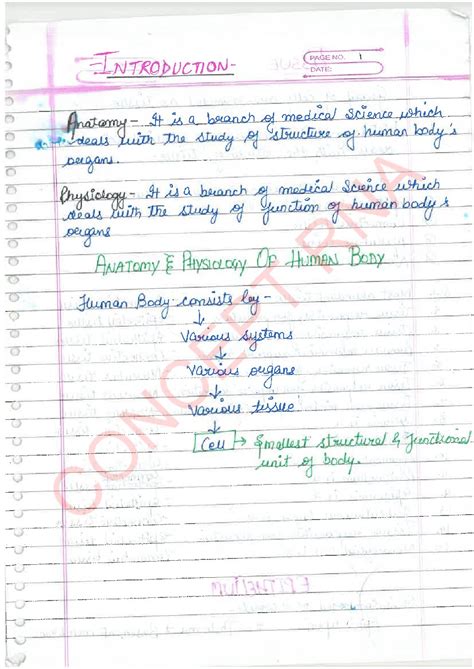 PAGE NO. 1
DATE:
-INTRODUCTION-
Anatomy - It is a branch of medical Science which
deals with the study of structure of human body's
organs.
Physiology - It is a branch of medical Science which
deals with the study of function of human body's
organs
ANATOMY & PHYSIOLOGY OF HUMAN BODY
Human Body consists by -
↓
Various systems
↓
Various organs
↓
Various tissue
↓
Cell → Smallest structural & functional
unit of body.
CONCEPT RNA
EPITHELIUM